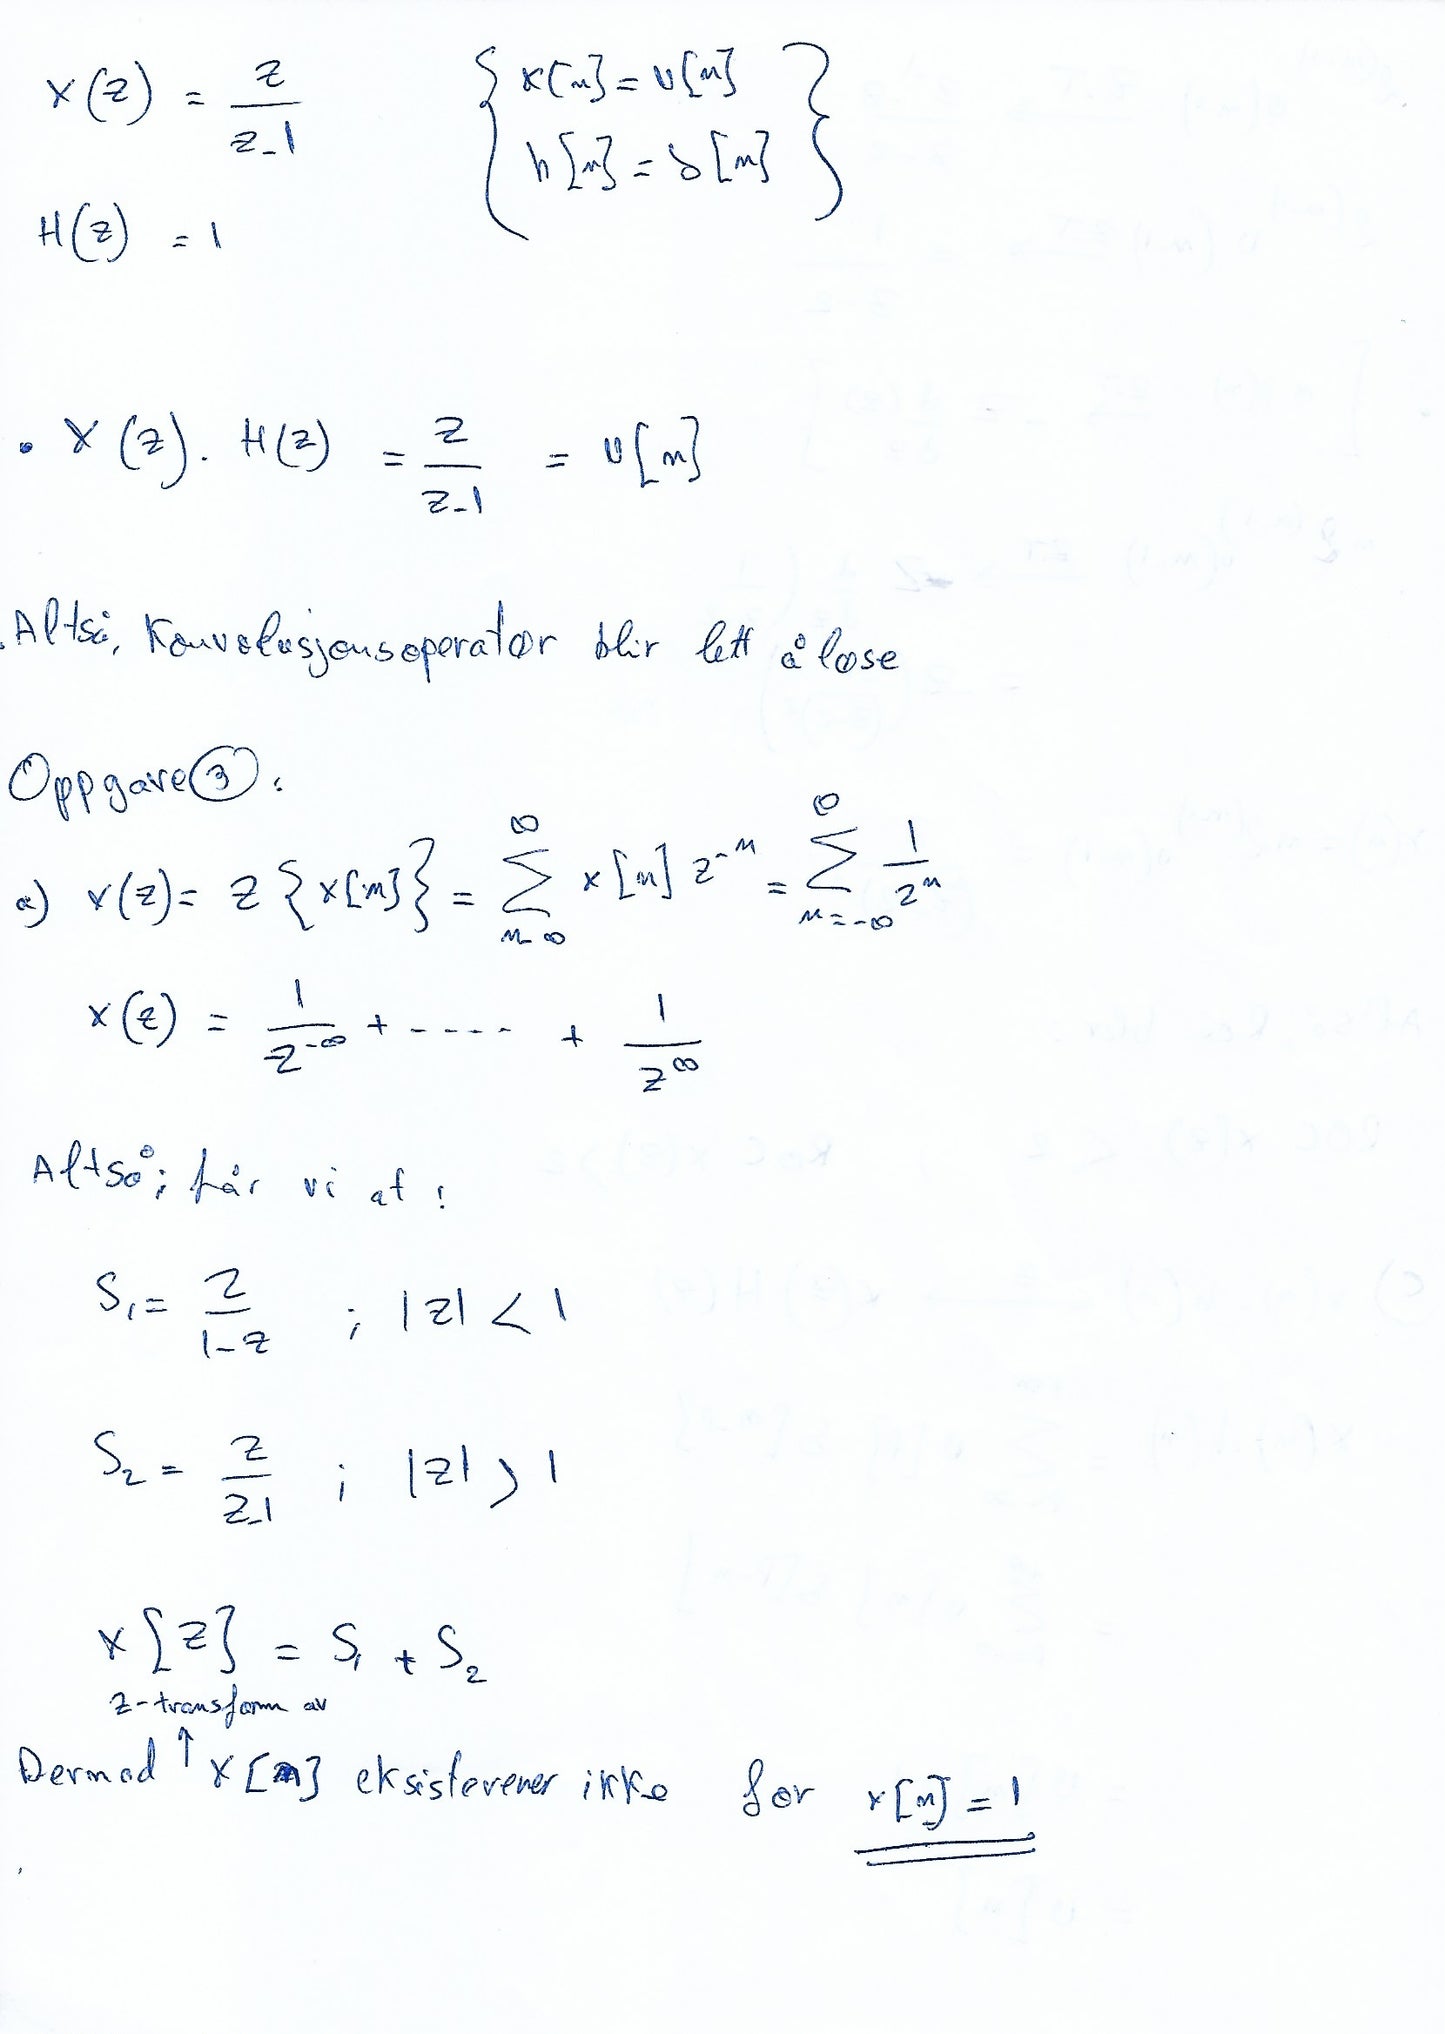 X(z) = z/(z-1) { x[n] = u[n]
h[n] = δ[n] }
H(z) = 1
• X(z). H(z) = z/(z-1) = u[n]
. Altså, Konvolusjonsoperatør blir lett å løse
Oppgave ③:
a) X(z) = Z{x[n]} = ∑_{n-∞}^{∞} x[n] z^{-n} = ∑_{n=-∞}^{∞} 1/z^n
X(z) = 1/z^{-∞} + ---- + 1/z^∞
Altså; får vi at:
S₁ = z/(1-z) ; |z| < 1
S₂ = z/(z-1) ; |z| > 1
X[z] = S₁ + S₂
z-transform av
Dermed ↑ x[n] eksisterener ikke for x[n] = 1